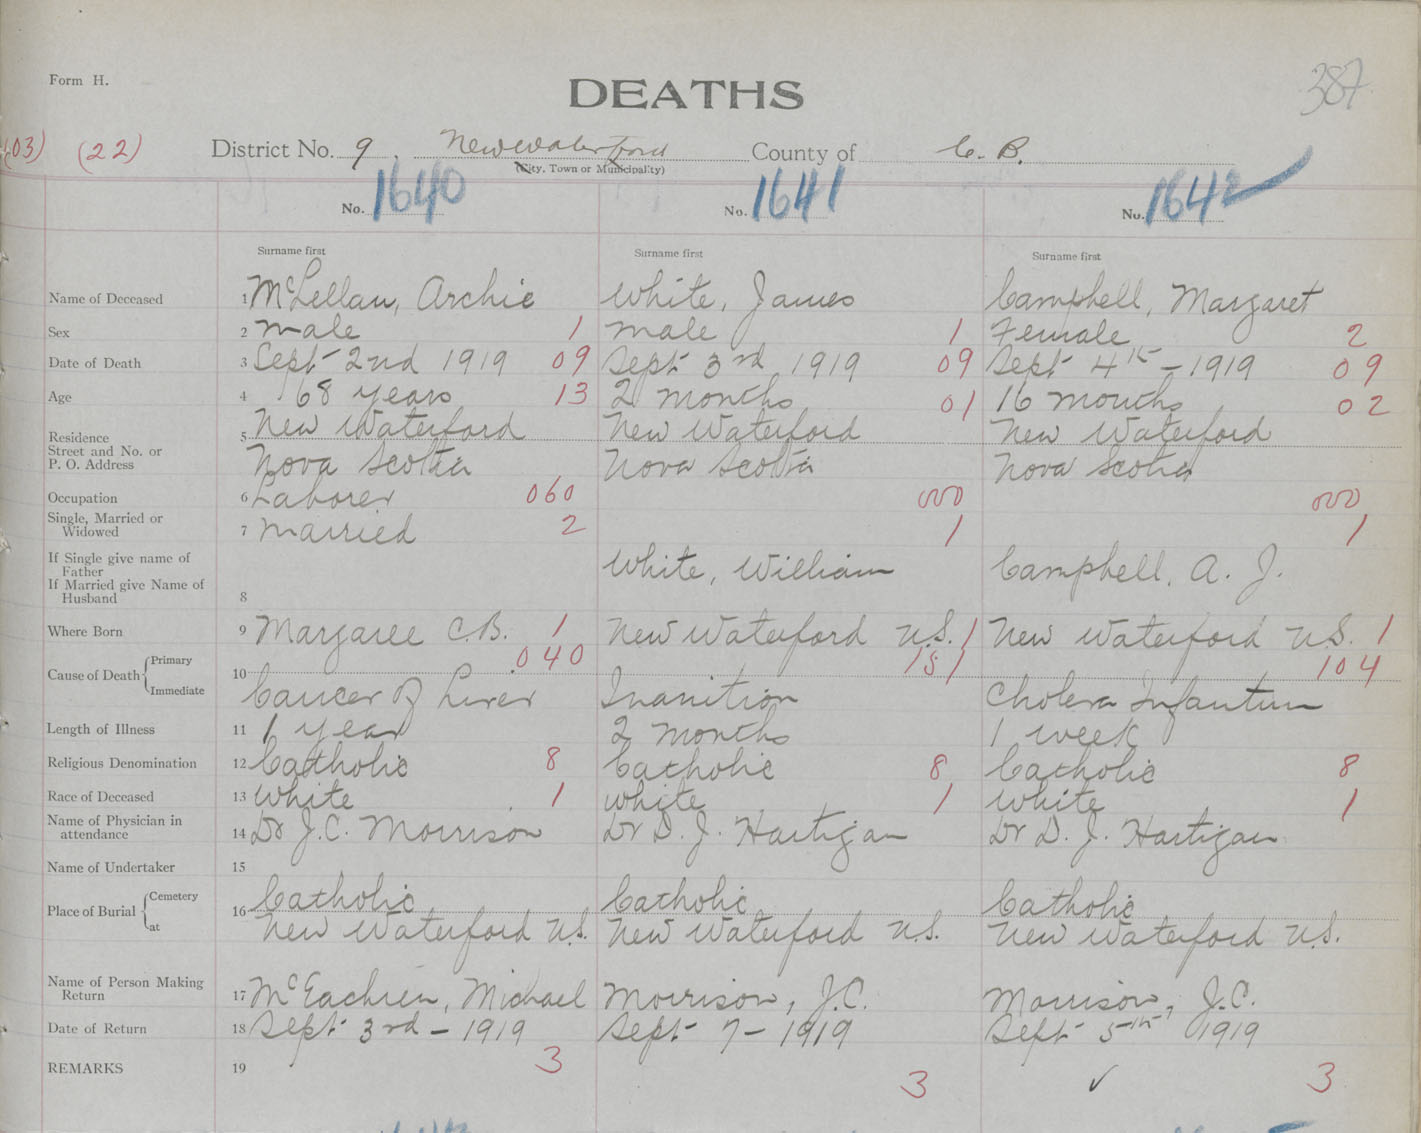 Form H.
387
DEATHS
(22)
District No. 9, New Waterford County of C. B.
(City, Town or Municipality)
No. 1640 No. 1641 No. 1642
Surname first Surname first Surname first
Name of Deceased 1 McLellan, Archie White, James Campbell, Margaret
Sex 2 male 1 male 1 Female 2
Date of Death 3 Sept 2nd 1919 09 Sept 3rd 1919 09 Sept 4th - 1919 09
Age 4 68 years 13 2 months 01 16 months 02
Residence 5 New Waterford New Waterford New Waterford
Street and No. or
P. O. Address Nova Scotia Nova Scotia Nova Scotia
Occupation 6 Laborer 060 000 000
Single, Married or
Widowed 7 married 2 1 1
If Single give name of
Father White, William Campbell, A. J.
If Married give Name of
Husband 8
Where Born 9 Margaree C.B. 1 New Waterford N.S. 1 New Waterford N.S. 1
Cause of Death Primary 10 040 151 104
Immediate Cancer of Liver Inanition Cholera Infantum
Length of Illness 11 1 year 2 months 1 week
Religious Denomination 12 Catholic 8 Catholic 8 Catholic 8
Race of Deceased 13 White 1 White 1 White 1
Name of Physician in
attendance 14 Dr J.C. Morrison Dr D. J. Hartigan Dr D. J. Hartigan
Name of Undertaker 15
Place of Burial Cemetery 16 Catholic Catholic Catholic
at New Waterford N.S. New Waterford N.S. New Waterford N.S.
Name of Person Making
Return 17 McEachren, Michael Morrison, J.C. Morrison, J.C.
Date of Return 18 Sept 3rd - 1919 Sept 7 - 1919 Sept 5th 1919
REMARKS 19 3 3 ✓ 3